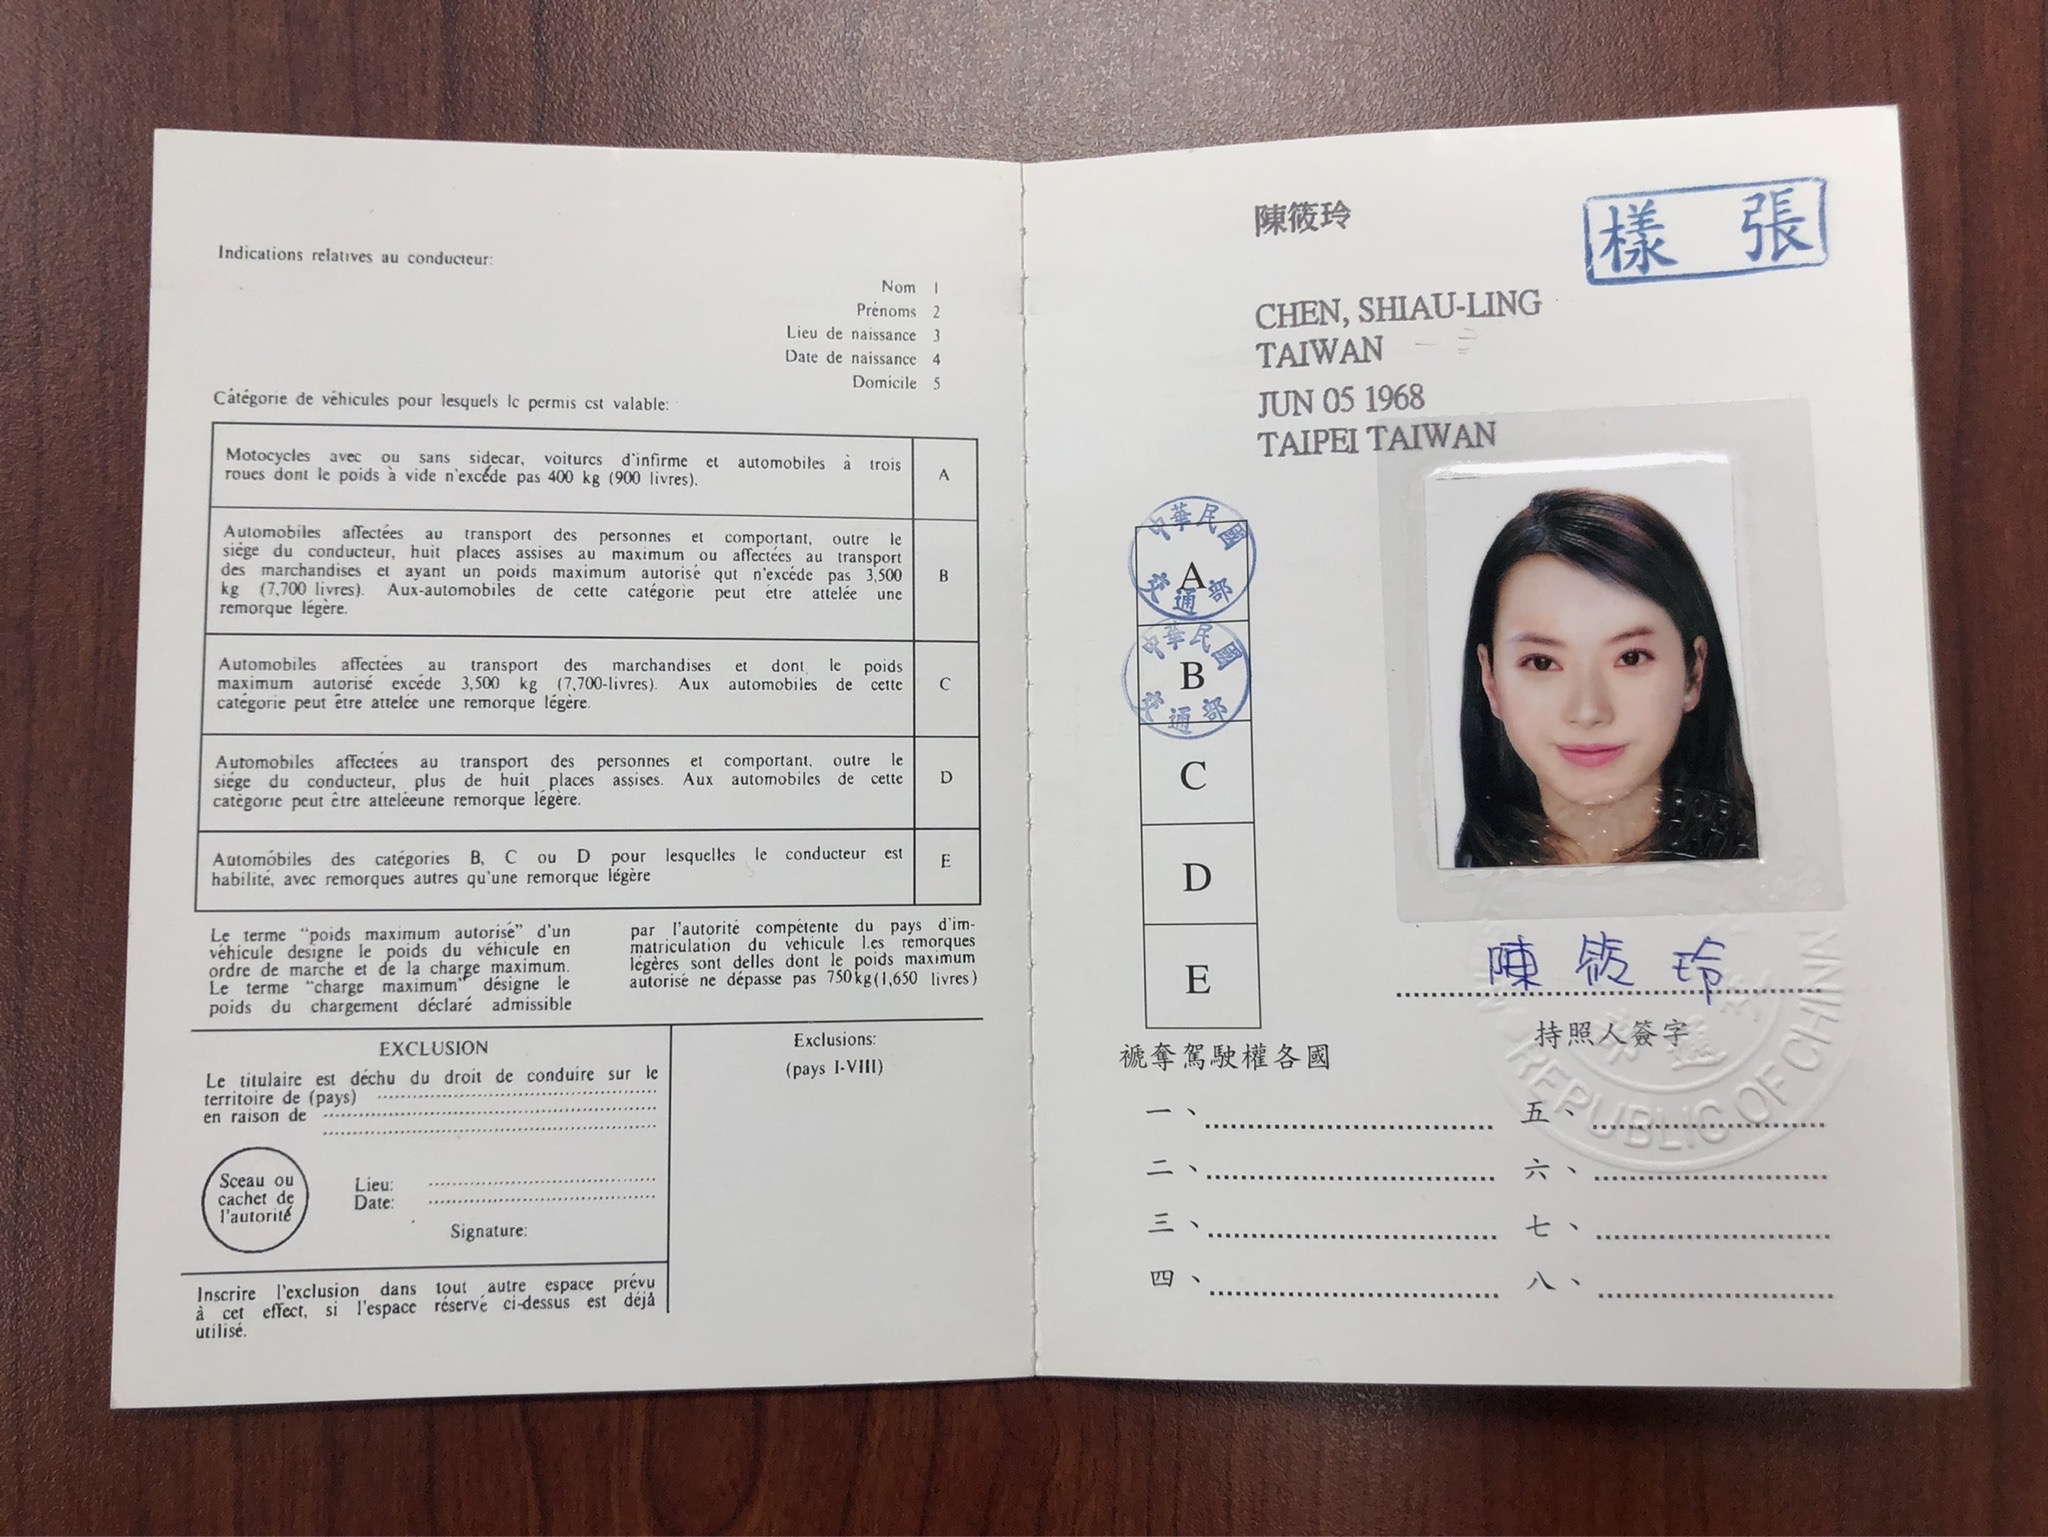 Indications relatives au conducteur:
Nom 1
Prénoms 2
Lieu de naissance 3
Date de naissance 4
Domicile 5
Catégorie de véhicules pour lesquels le permis est valable:
Motocycles avec ou sans sidecar, voitures d'infirme et automobiles à trois
roues dont le poids à vide n'excéde pas 400 kg (900 livres).
A
Automobiles affectées au transport des personnes et comportant, outre le
siége du conducteur, huit places assises au maximum ou affectées au transport
des marchandises et ayant un poids maximum autorisé qut n'excéde pas 3,500
kg (7,700 livres). Aux-automobiles de cette catégorie peut étre attelée une
remorque légère.
B
Automobiles affectées au transport des marchandises et dont le poids
maximum autorisé excéde 3,500 kg (7,700-livres). Aux automobiles de cette
catégorie peut être attelée une remorque légère.
C
Automobiles affectées au transport des personnes et comportant, outre le
siége du conducteur, plus de huit places assises. Aux automobiles de cette
catégorie peut être atteléeune remorque légère.
D
Automobiles des catégories B, C ou D pour lesquelles le conducteur est
habilité, avec remorques autres qu'une remorque légère
E
Le terme "poids maximum autorisé" d'un
véhicule designe le poids du véhicule en
ordre de marche et de la charge maximum.
Le terme "charge maximum" désigne le
poids du chargement déclaré admissible
par l'autorité compétente du pays d'im-
matriculation du véhicule Les remorques
légères sont delles dont le poids maximum
autorisé ne dépasse pas 750kg(1,650 livres)
EXCLUSION
Le titulaire est déchu du droit de conduire sur le
territoire de (pays)
en raison de
Sceau ou
cachet de
l'autorité
Lieu:
Date:
Signature:
Inscrire l'exclusion dans tout autre espace prévu
à cet effect, si l'espace réservé ci-dessus est déjà
utilisé.
Exclusions:
(pays I-VIII)
陳筱玲
樣 張
CHEN, SHIAU-LING
TAIWAN
JUN 05 1968
TAIPEI TAIWAN
中華民國
A
交通部
中華民國
B
交通部
C
D
E
陳筱玲
持照人簽字
REPUBLIC OF CHINA
褫奪駕駛權各國
一、 五、
二、 六、
三、 七、
四、 八、